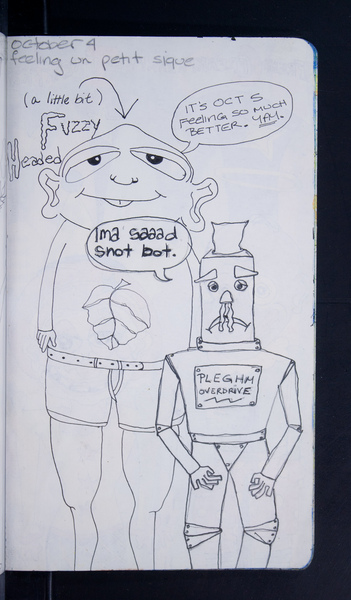 october 4
feeling un petit sique
(a little bit)
Fuzzy
Headed
IT'S OCT 5
FEELING SO MUCH
BETTER. YAY.
Ima saaad
snot bot.
PLEGHM
OVERDRIVE